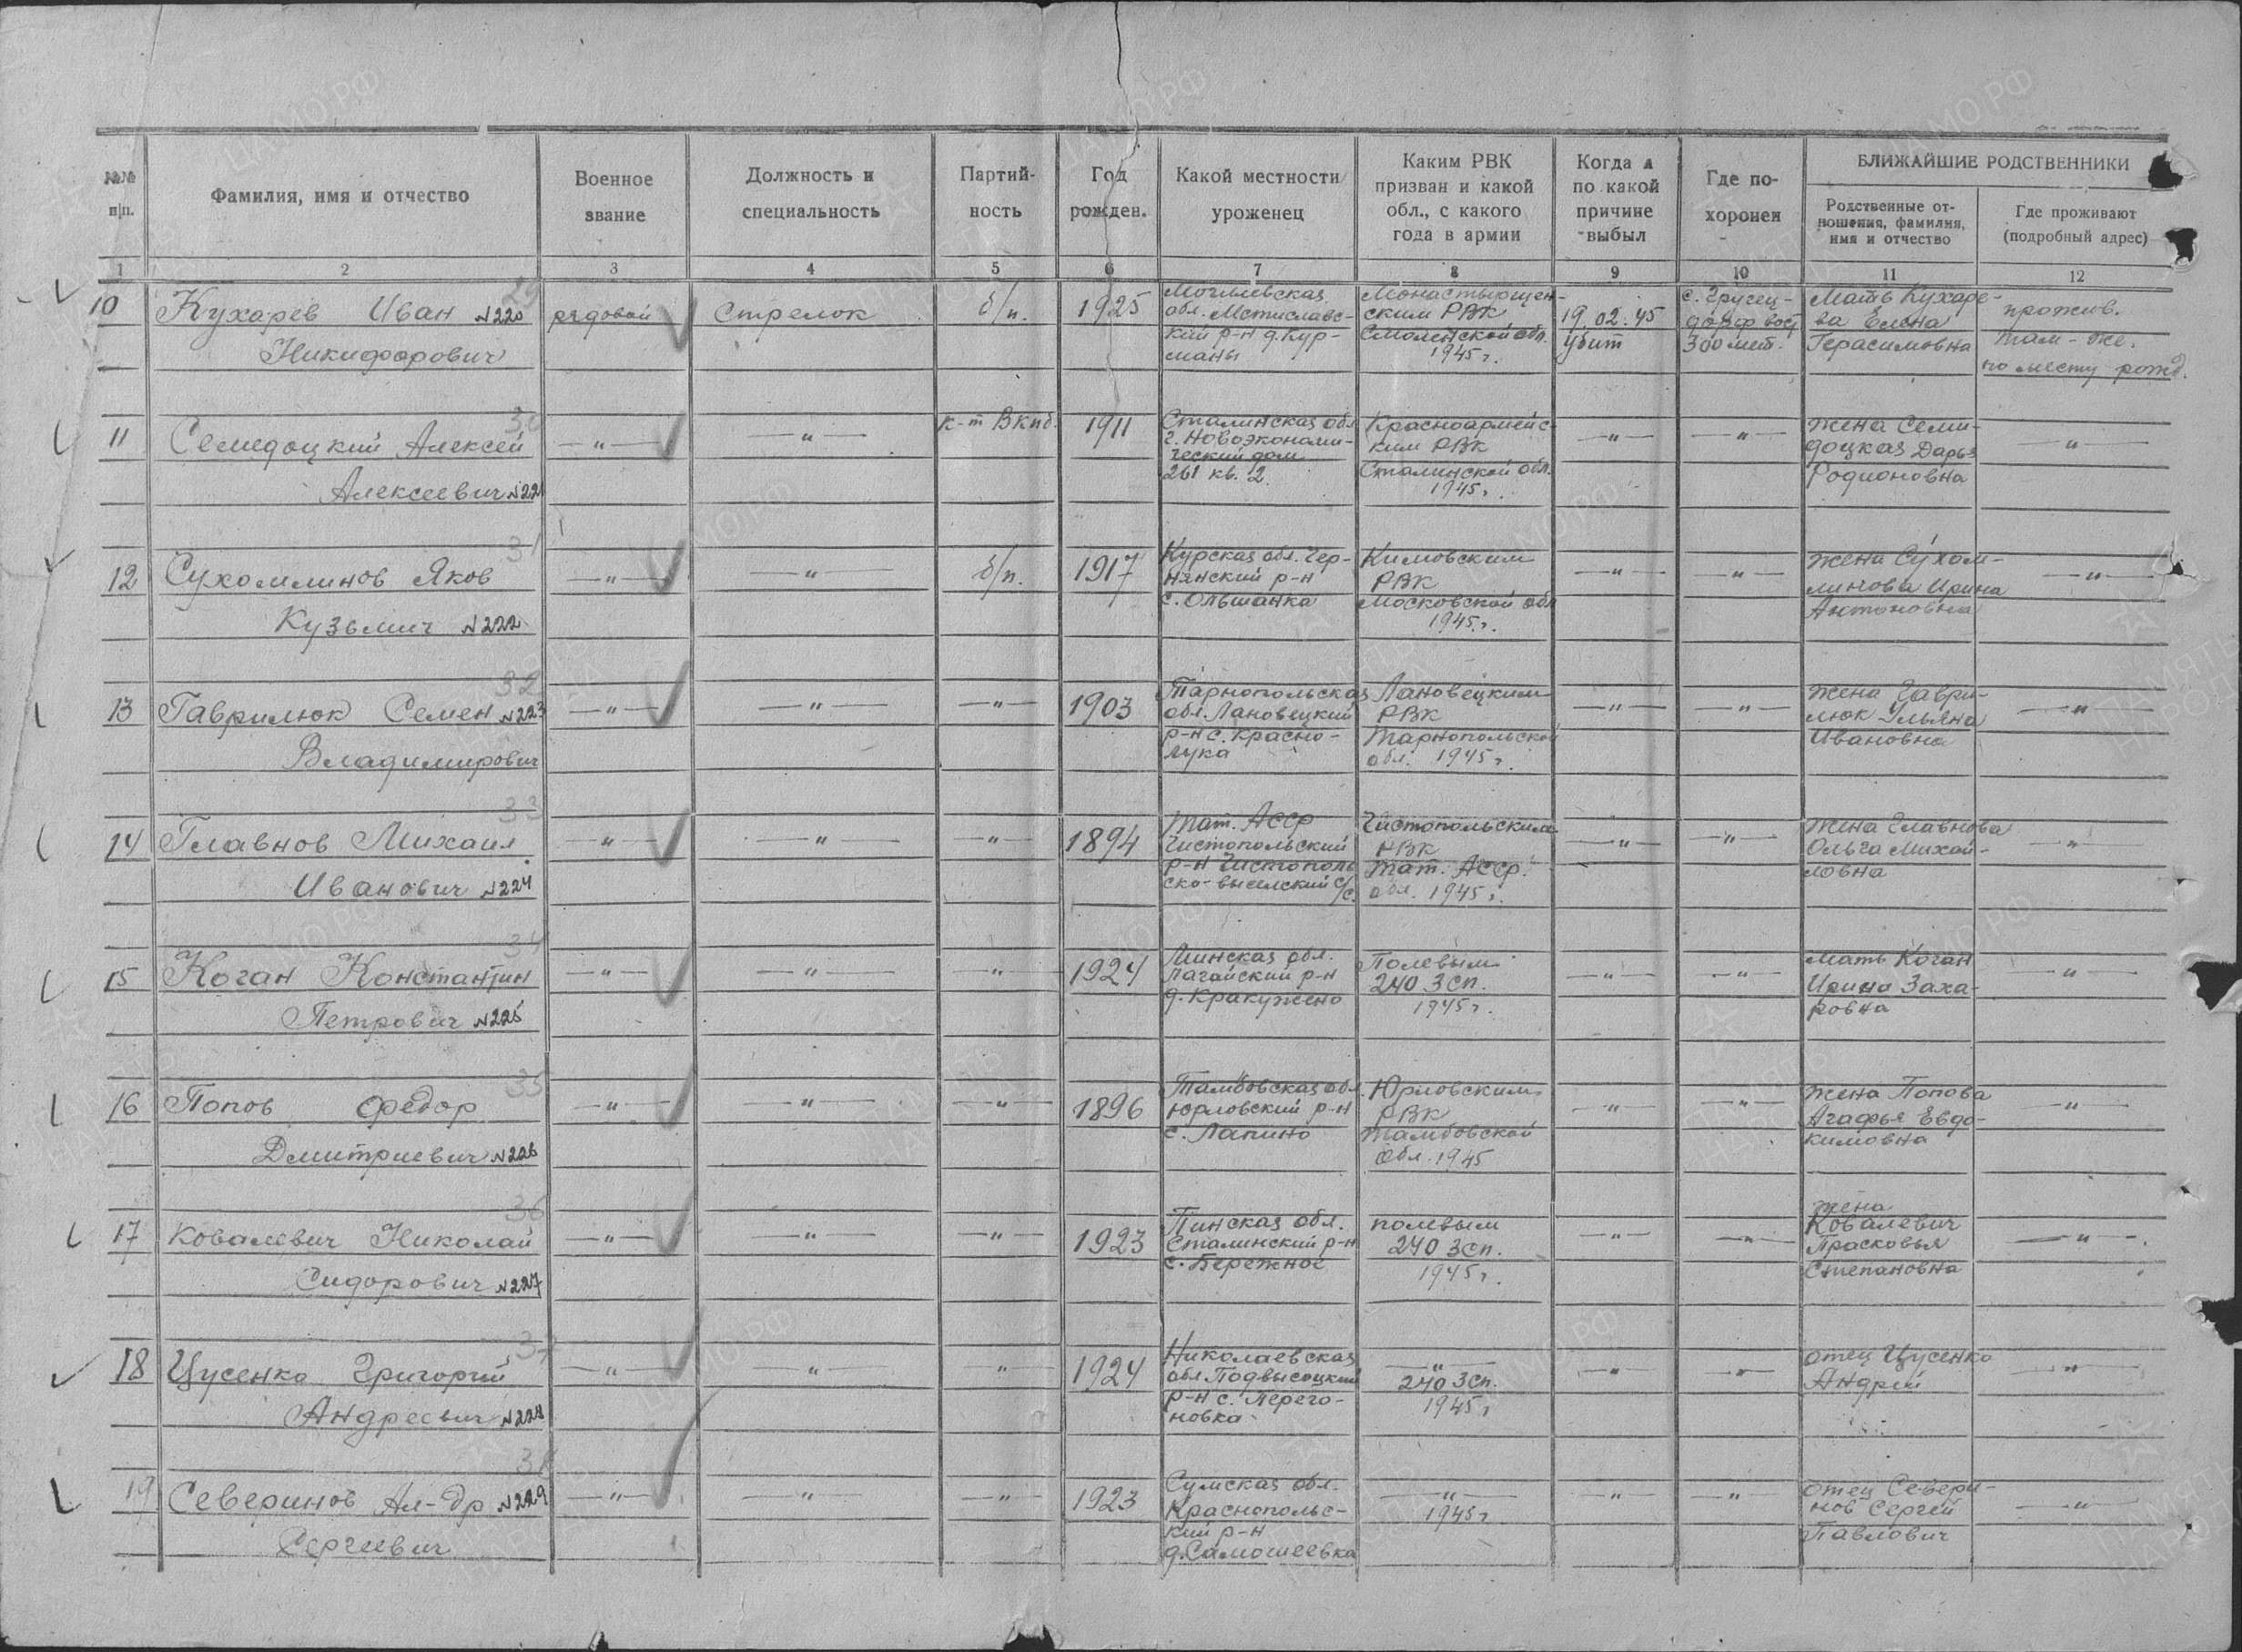 №№ п|п.
Фамилия, имя и отчество
Военное звание
Должность и специальность
Партийность
Год рожден.
Какой местности уроженец
Каким РВК призван и какой обл., с какого года в армии
Когда и по какой причине выбыл
Где похоронен
БЛИЖАЙШИЕ РОДСТВЕННИКИ
Родственные отношения, фамилия, имя и отчество
Где проживают (подробный адрес)
1 2 3 4 5 6 7 8 9 10 11 12
10 Кухарев Иван №220 Никифорович 29 рядовой Стрелок б/п. 1925 Могилевская обл. Мстиславский р-н д. Курманы Монастырщенским РВК Смоленской обл. 1945г. 19.02.45 убит 300 мет. Мать Кухарева Елена Герасимовна прожив. там-же. по месту рожд.
11 Семедоцкий Алексей Алексеевич №221 30 —"— —"— к-т ВКПб. 1911 Сталинская обл г. Новоэкономический дом 261 кв. 2. Красноармейским РВК Сталинской обл. 1945г. —"— —"— жена Семидоцкая Дарья Родионовна —"—
12 Сухомлинов Яков Кузьмич №222 31 —"— —"— б/п. 1917 Курская обл. Чернянский р-н с. Ольшанка Кимовским РВК Московской обл 1945.г. —"— —"— жена Сухомлинова Ирина Антоновна —"—
13 Гаврилюк Семен №223 Владимирович 32 —"— —"— —"— 1903 Тарнопольская обл. Лановецкий р-н с. Краснолука Лановецким РВК Тарнопольской обл. 1945г. —"— —"— жена Гаврилюк Ульяна Ивановна —"—
14 Главнов Михаил Иванович №224 33 —"— —"— —"— 1894 Тат. АССР Чистопольский р-н Чистопольско-выселский с/с. Чистопольским РВК Тат. АССР. обл. 1945г. —"— —"— жена Главнова Ольга Михайловна —"—
15 Коган Константин Петрович №225 34 —"— —"— —"— 1924 Минская обл. Лагайский р-н д. Кракужено Полевым 240 Зсп. 1945г. —"— —"— Мать Коган Ирина Захаровна —"—
16 Попов Федор Дмитриевич №226 35 —"— —"— —"— 1896 Тамбовская обл Юрловский р-н с. Лапино Юрловским РВК Тамбовской Обл. 1945 —"— —"— жена Попова Агафья Евдокимовна —"—
17 Ковалевич Николай Сидорович №227 36 —"— —"— —"— 1923 Пинская обл. Сталинский р-н с. Бережное полевым 240 Зсп. 1945г. —"— —"— жена Ковалевич Прасковья Степановна —"—
18 Цусенко Григорий Андреевич №228 37 —"— —"— —"— 1924 Николаевская обл Подвысоцкий р-н с. Перегоновка —"— 240 Зсп. 1945г —"— —"— отец Цусенко Андрей —"—
19 Северинов Ал-др №229 Сергеевич 38 —"— —"— —"— 1923 Сумская обл. Краснопольский р-н д. Самотеевка —"— 1945г. —"— —"— отец Северинов Сергей Павлович —"—